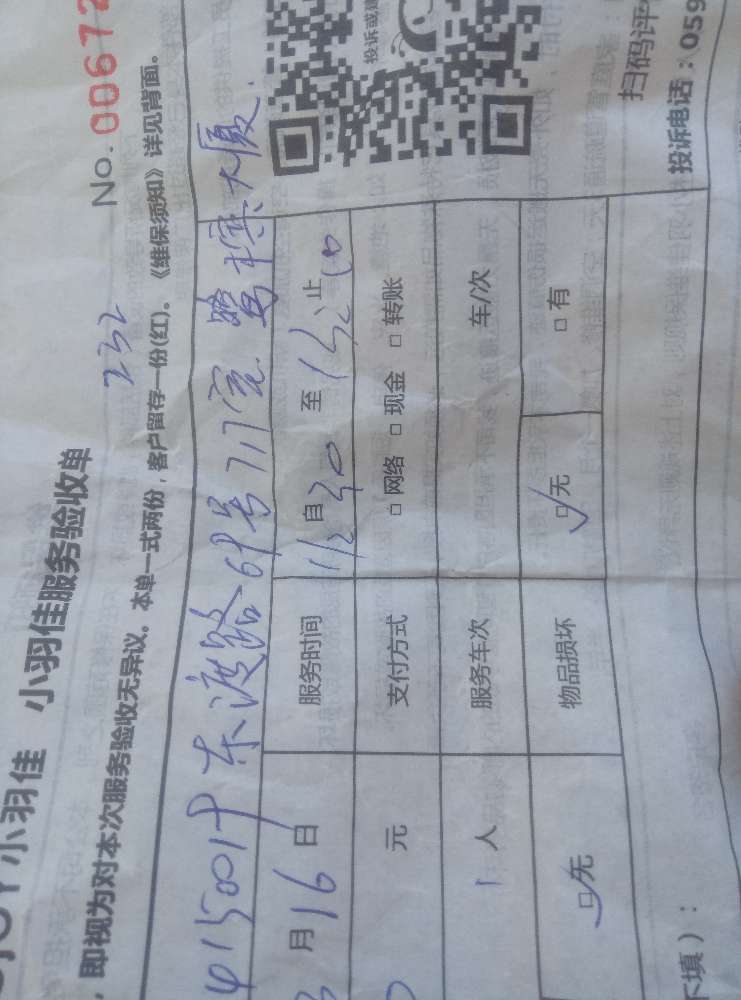 JOY小羽佳 小羽佳服务验收单
No.00672
232
，即视为对本次服务验收无异议。本单一式两份，客户留存一份(红)。《维保须知》详见背面。
东渡路69号717室
大厦
月16日 服务时间 自 至 止
元 支付方式 □网络 □现金 □转账
1人 服务车次 车/次
□无 物品损坏 □无 □有
不填）：
投诉或
扫码评
投诉电话：059